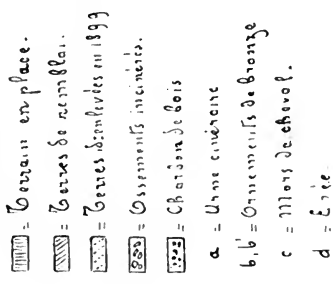 = Terrain en place.
= Terres de remblai.
= Terres enlevées en 1899
= Ossements incinérés.
= Charbon de bois
a = Urne cinéraire
b, b' = Ornements de bronze
c = Mors de cheval.
d = Épée